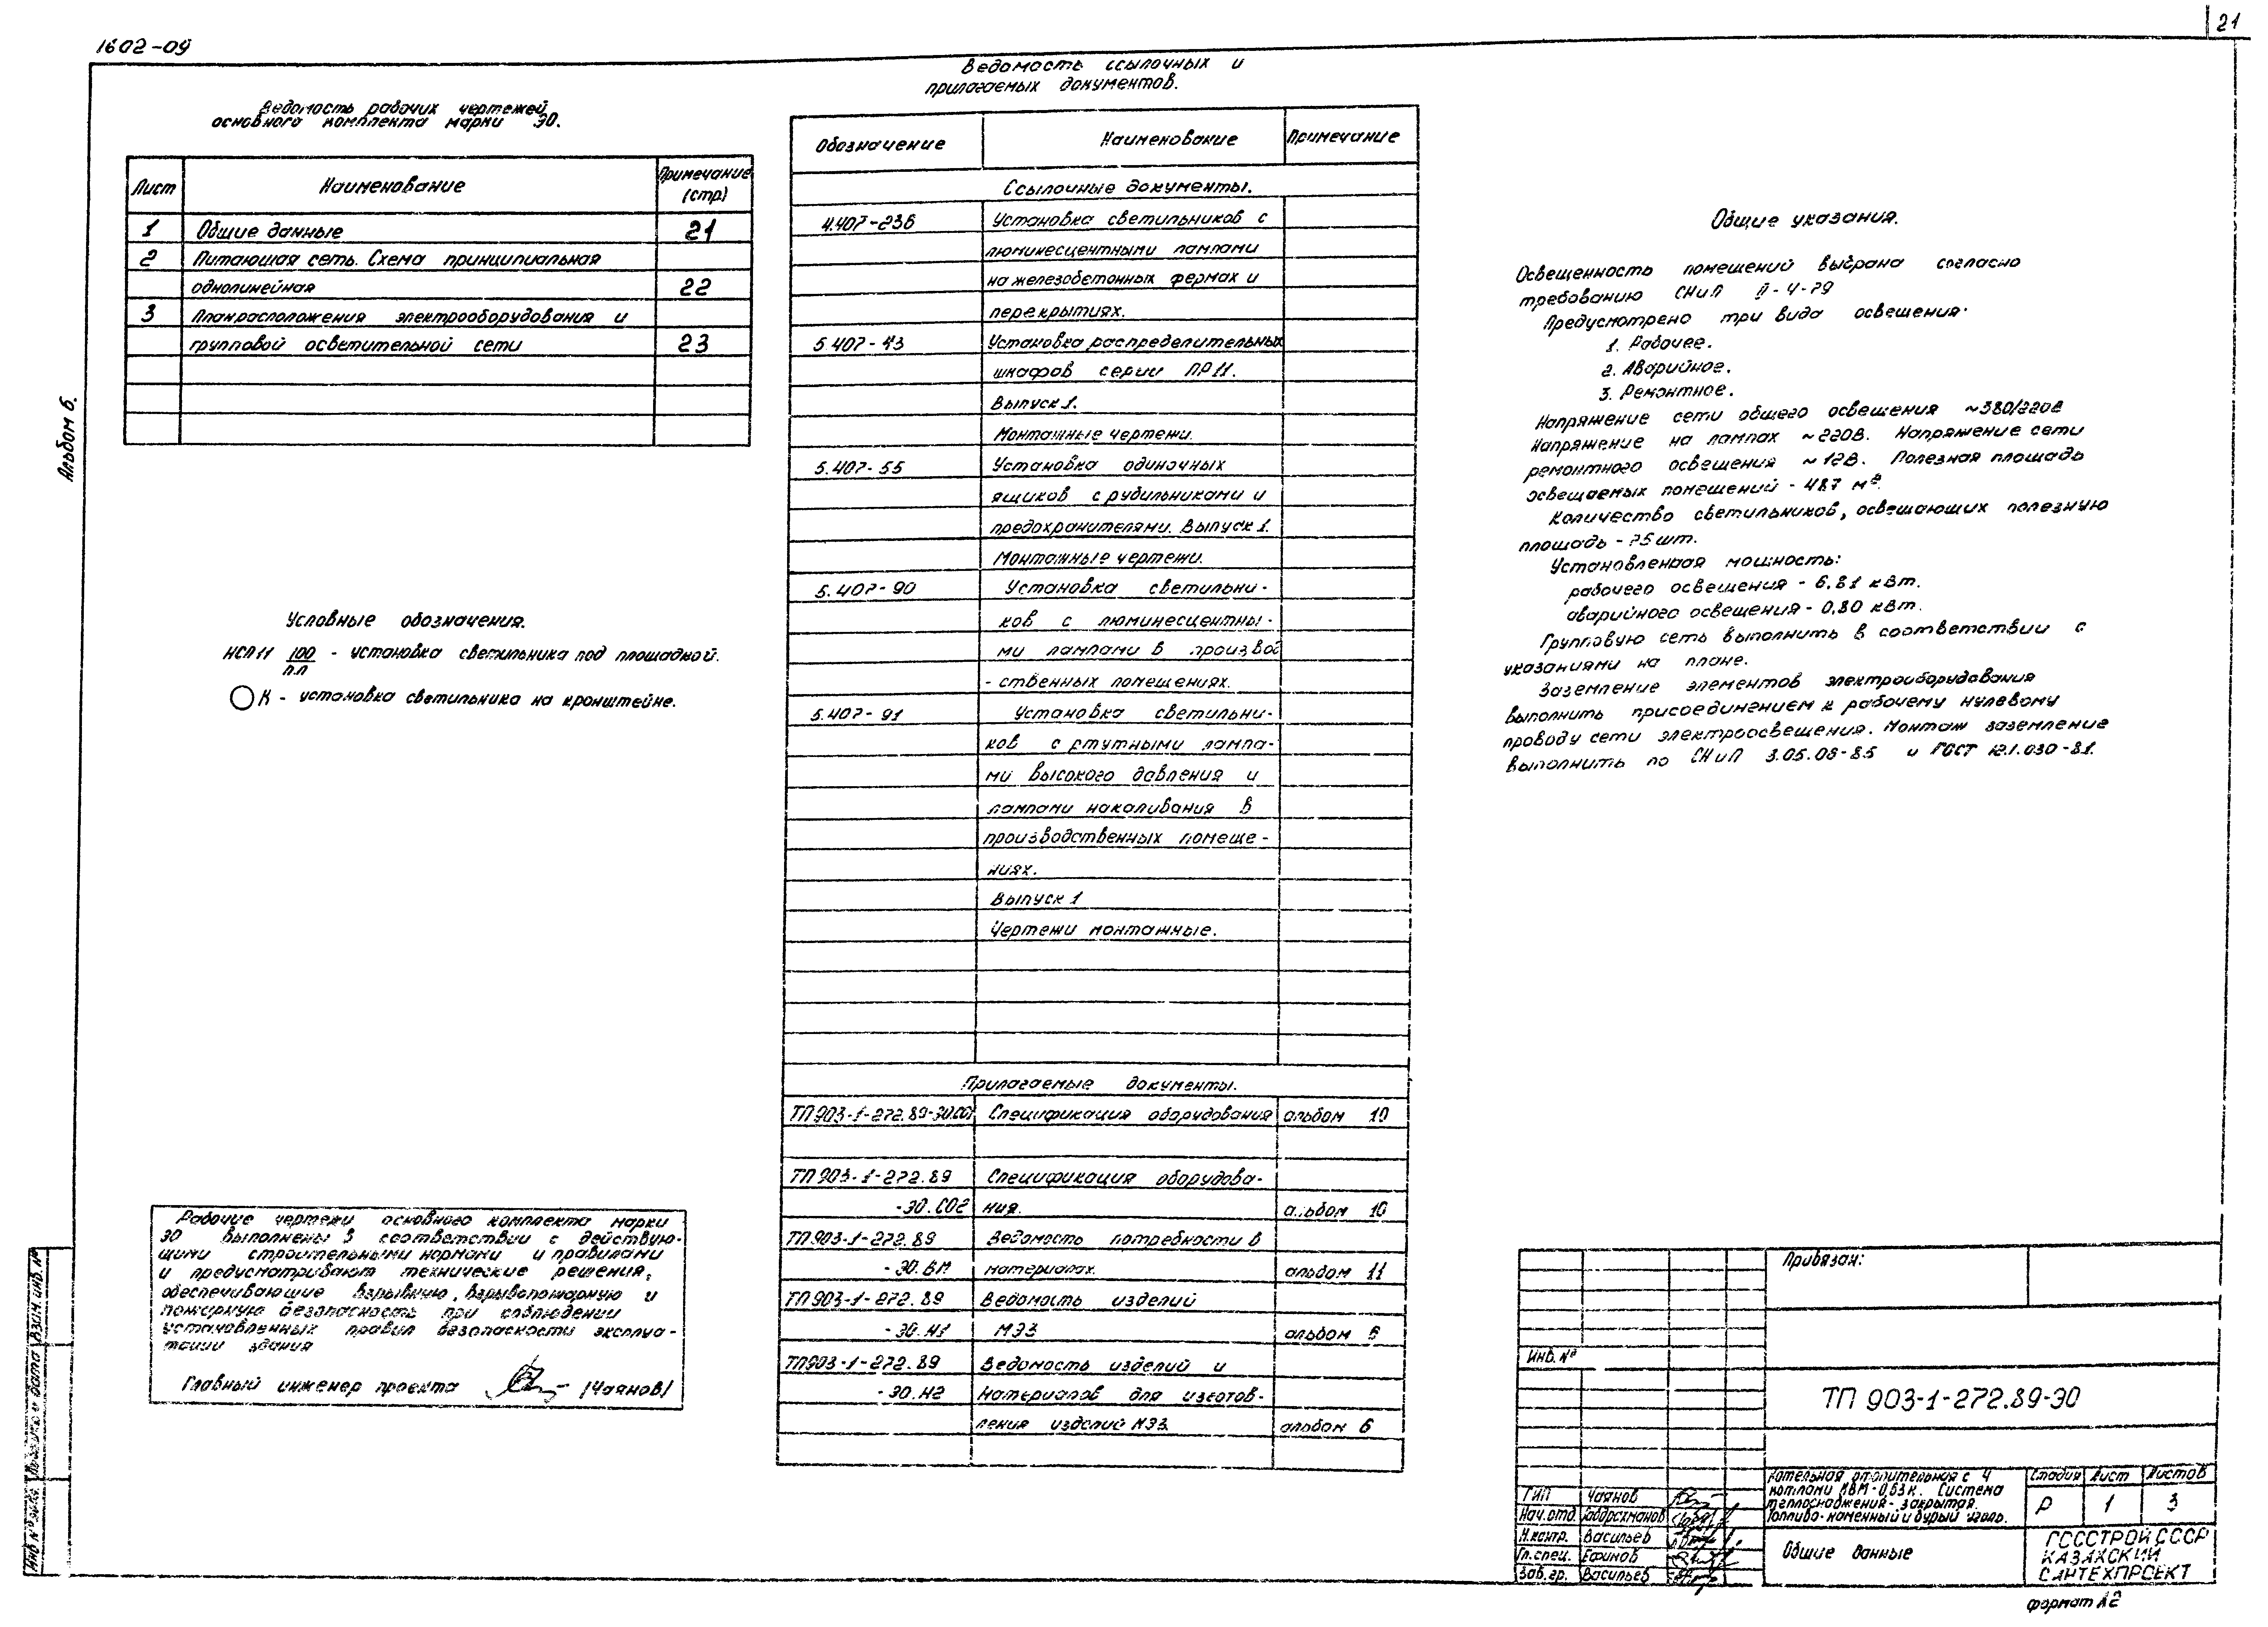 21
1602-09
Альбом 6.
Ведомость рабочих чертежей
основного комплекта марки ЭО.
Лист Наименование Примечание (стр)
1 Общие данные 21
2 Питающая сеть. Схема принципиальная
однолинейная 22
3 План расположения электрооборудования и
групповой осветительной сети 23
Условные обозначения.
НСП11 100/п.п - установка светильника под площадкой.
К - установка светильника на кронштейне.
Рабочие чертежи основного комплекта марки
ЭО выполнены в соответствии с действую-
щими строительными нормами и правилами
и предусматривают технические решения,
обеспечивающие взрывную, взрывопожарную и
пожарную безопасность при соблюдении
установленных правил безопасности эксплуа-
тации здания
Главный инженер проекта /Чаянов/
Ведомость ссылочных и
прилагаемых документов.
Обозначение Наименование Примечание
Ссылочные документы.
4.407-236 Установка светильников с
люминесцентными лампами
на железобетонных фермах и
перекрытиях.
5.407-43 Установка распределительных
шкафов серии ПР11.
Выпуск 1.
Монтажные чертежи.
5.407-55 Установка одиночных
ящиков с рубильниками и
предохранителями. Выпуск 1.
Монтажные чертежи.
5.407-90 Установка светильни-
ков с люминесцентны-
ми лампами в произвоd
- ственных помещениях.
5.407-91 Установка светильни-
ков с ртутными лампа-
ми высокого давления и
лампами накаливания в
производственных помеще-
ниях.
Выпуск 1
Чертежи монтажные.
Прилагаемые документы.
ТП 903-1-272.89-ЭО.СО1 Спецификация оборудования альбом 10
ТП 903-1-272.89 Спецификация оборудова-
-ЭО.СО2 ния. альбом 10
ТП 903-1-272.89 Ведомость потребности в
-ЭО.ВМ материалах. альбом 11
ТП 903-1-272.89 Ведомость изделий
-ЭО.И1 МЭЗ альбом 6
ТП903-1-272.89 Ведомость изделий и
-ЭО.И2 материалов для изготов-
ления изделий МЭЗ альбом 6
Общие указания.
Освещенность помещений выбрана согласно
требованию СНиП II-4-79
Предусмотрено три вида освещения.
1. Рабочее.
2. Аварийное.
3. Ремонтное.
Напряжение сети общего освещения ~380/220В
Напряжение на лампах ~220В. Напряжение сети
ремонтного освещения ~12В. Полезная площадь
освещаемых помещений - 487 м².
Количество светильников, освещающих полезную
площадь - 75 шт.
Установленная мощность:
рабочего освещения - 6,81 кВт.
аварийного освещения - 0,80 кВт.
Групповую сеть выполнить в соответствии с
указаниями на плане.
Заземление элементов электрооборудования
выполнить присоединением к рабочему нулевому
проводу сети электроосвещения. Монтаж заземление
выполнить по СНиП 3.05.06-85 и ГОСТ 12.1.030-81.
Привязан:
Инв. №
ТП 903-1-272.89-ЭО
Котельная отопительная с 4
котлами КВМ-0,63к. Система
теплоснабжения- закрытая.
Топливо-каменный и бурый уголь.
Стадия Лист Листов
Р 1 3
ГИП Чаянов
Нач.отд. Габдрахманов
Н.контр. Васильев
Гл.спец. Ефимов
Зав.гр. Васильев
Общие данные
ГОССТРОЙ СССР
КАЗАХСКИЙ
САНТЕХПРОЕКТ
Инв № подл. Подпись и дата Взам. инв. №
формат А2